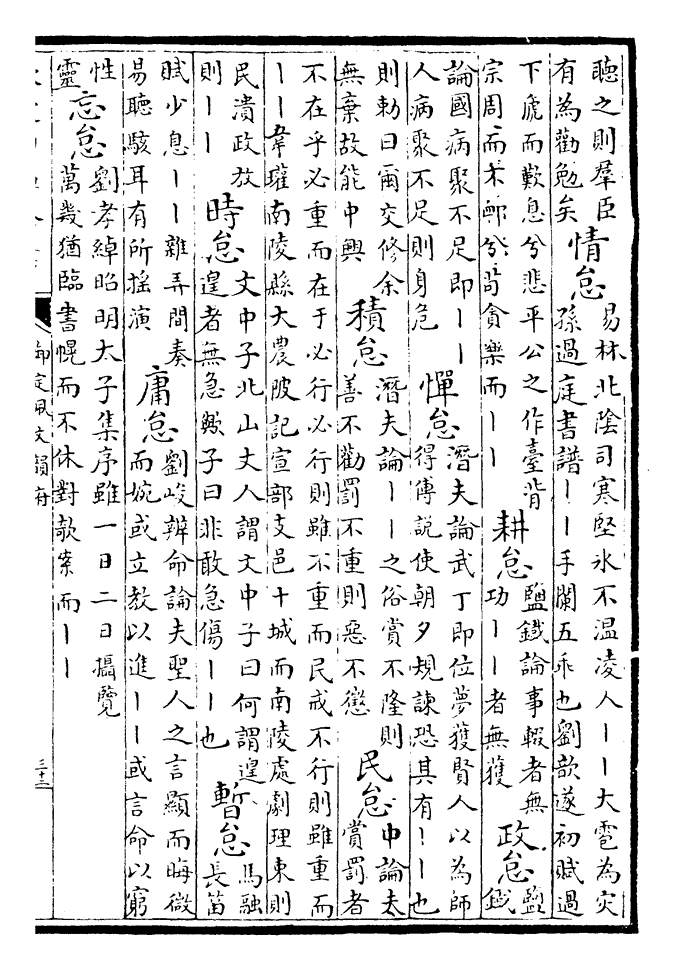 聽之則羣臣
有為勸勉矣
情怠
易林北陰司寒堅冰不温凌人丨丨大雹為灾
孫過庭書譜丨丨手闌五乖也劉歆遂初賦過
下虒而歎息兮悲平公之作臺背
宗周而不䘏兮苟貪樂而丨丨
耕怠
鹽鐵論事輟者無
功丨丨者無獲
政怠
鹽
鐵
論國病聚不足即丨丨
人病聚不足則身危
憚怠
潛夫論武丁即位夢獲賢人以為師
得傅説使朝夕規諫恐其有丨丨也
則勅曰爾交修余
無棄故能中興
積怠
潛夫論丨丨之俗賞不隆則
善不勸罰不重則惡不懲
民怠
中論夫
賞罰者
不在乎必重而在于必行必行則雖不重而民戒不行則雖重而
丨丨韋瓘南陵縣大農陂記宣部支邑十城而南陵處劇理東則
民潰政放
則丨丨
時怠
文中子北山丈人謂文中子曰何謂遑
遑者無急歟子曰非敢急傷丨丨也
暫怠
馬融
長笛
賦少息丨丨雜弄間奏
易聽駭耳有所揺演
庸怠
劉峻辨命論夫聖人之言顯而晦微
而婉或立教以進丨丨或言命以窮
性
靈
忘怠
劉孝綽昭明太子集序雖一日二日攝覽
萬幾猶臨書幌而不休對欹案而丨丨
御定佩文韻府
三十三